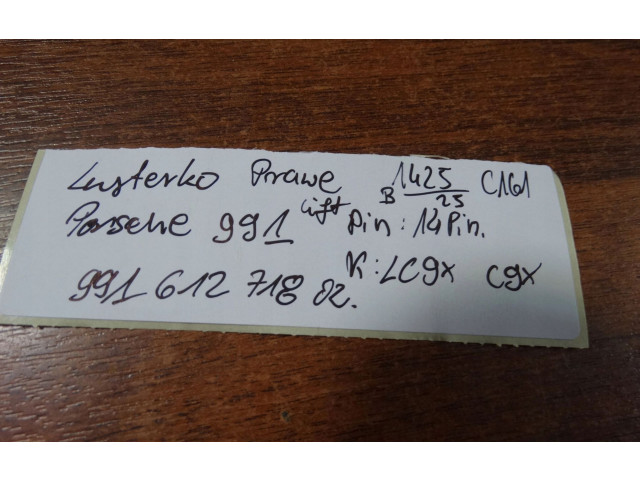 Lusterko Prawe B 1425/25 C161
Porsche 991 lift Pin: 14Pin.
991 612 718 02. K: LC9x C9x